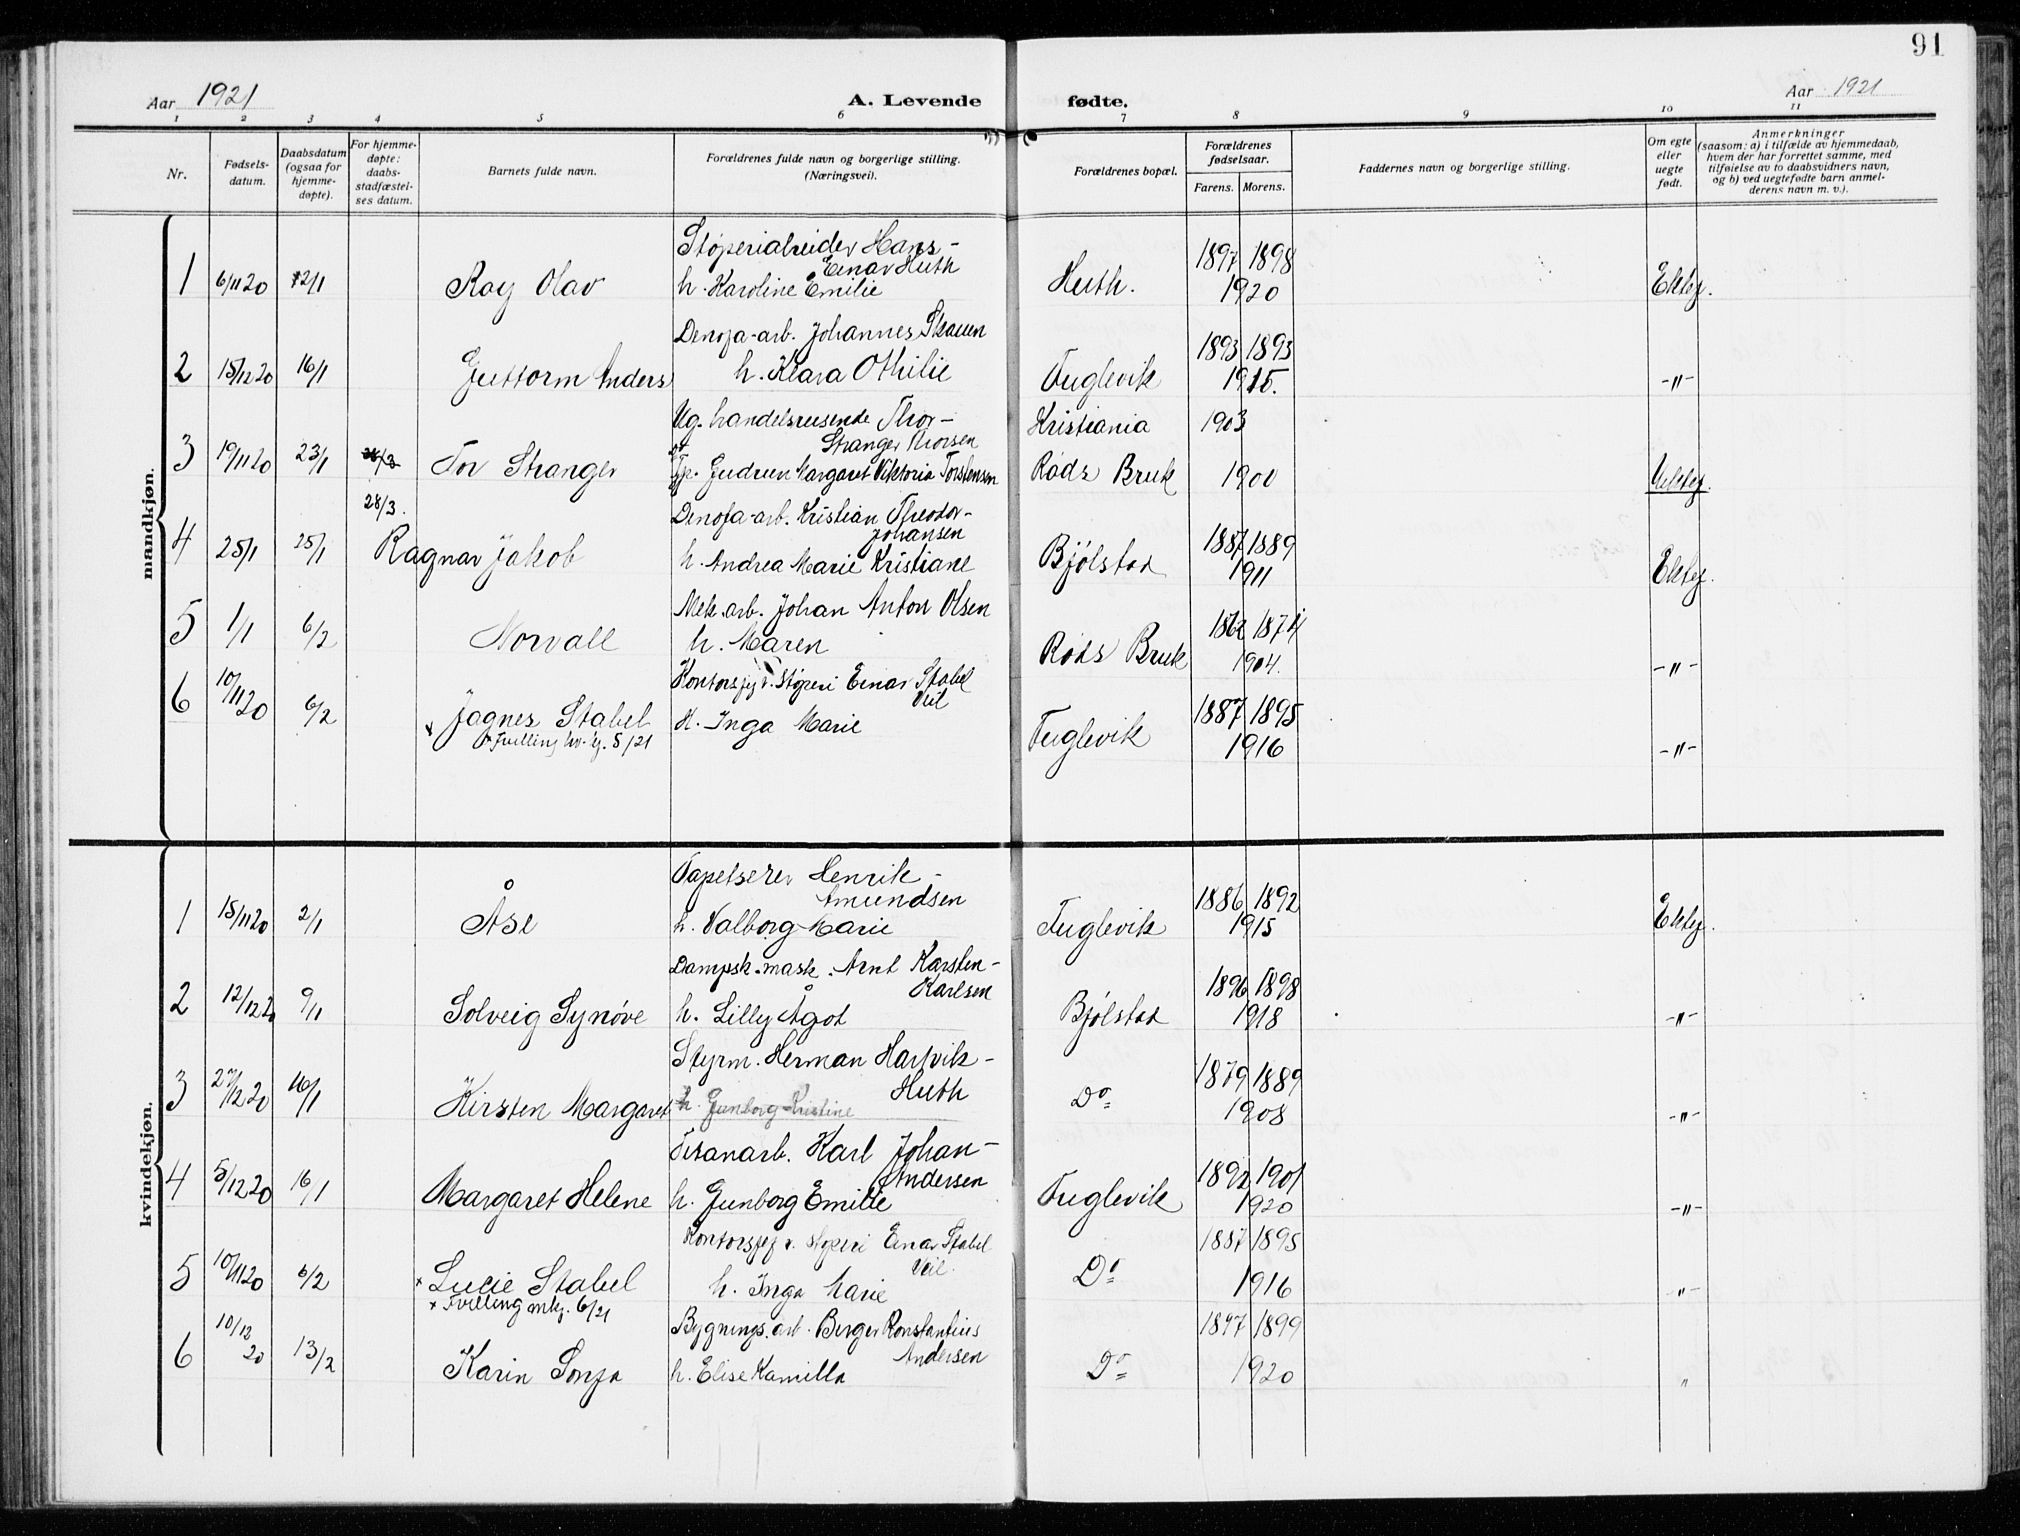 91
Aar 1921
A. Levende fødte.
Aar 1921
1 2 3 4 5 6 7 8 9 10 11
Nr.
Fødsels-
datum.
Daabsdatum
(ogsaa for
hjemme-
døpte).
For hjemme-
døpte:
daabs-
stadfæstel-
ses datum.
Barnets fulde navn.
Forældrenes fulde navn og borgerlige stilling.
(Næringsvei).
Forældrenes bopæl.
Forældrenes
fødselsaar.
Farens. Morens.
Faddernes navn og borgerlige stilling.
Om egte
eller
uegte
født.
Anmerkninger
(saasom: a) i tilfælde av hjemmedaab,
hvem der har forrettet samme, med
tilføielse av to daabsvidners navn,
og b) ved uegtefødte barn anmel-
derens navn m. v.).
mandkjøn.
Støperiarbeider Hans -
Einar Huth
1897 1898
1 6/11 20 2/1 Roy Olav h. Karoline Emilie Huth. 1920 Ektef.
Denofa-arb. Johannes Skauen
1893 1893
2 15/12 20 16/1 Guttorm Anders h. Klara Othilie Fuglevik 1915. -"-
Ug. handelsreisende Thor - Kristiania 1903
Stranger Thorsen
3 19/11 20 23/1 Tor Stranger Gudrun Margaret Viktoria Torstensen Røds Bruk 1900 Uektef.
28/3.
Denofa-arb. Kristian Theodor -
Johansen
1887 1889
4 25/1 25/1 Ragnar Jakob h. Andrea Marie Kristiane Bjølstad 1911 Ektef.
Mek. arb. Johan Anton Olsen
1862 1874
5 1/1 6/2 Norvall h. Maren Røds Bruk 1904. -"-
Kontorsjef v. Støperi Einar Stabel
Veil
1887 1895
6 10/11 20 6/2 x Jagnes Stabel H. Inga Marie Fuglevik 1916 -"-
x Tvilling kv.kj. 5/21
kvindekjøn.
Tapetserer Henrik -
Amundsen
1886 1892
1 15/11 20 2/1 Åse h. Valborg Marie Fuglevik 1915 Ektef.
Dampsk. mask. Arnt Karsten -
Karlsen
1896 1898
2 12/12 20 9/1 Solveig Synøve h. Lilly Ågot Bjølstad 1918 -"-
Styrm. Herman Hartvik -
Huth
1879 1889
3 27/12 20 16/1 Kirsten Margaret h. Gunborg Kristine Do 1908 -"-
Titanarb. Karl Johan -
Andersen
1892 1901
4 5/12 20 16/1 Margaret Helene h. Gunborg Emilie Fuglevik 1920 -"-
Kontorsjef v. støperi Einar Stabel
Veil.
1887 1895
5 10/11 20 6/2 x Lucie Stabel h. Inga Marie Do 1916 "
x Tvilling mkj. 6/21
Bygnings.arb. Berger Konstantius
Andersen
1897 1899
6 10/12 20 13/2 Karin Sonja h. Elise Kamilla Do 1920 "